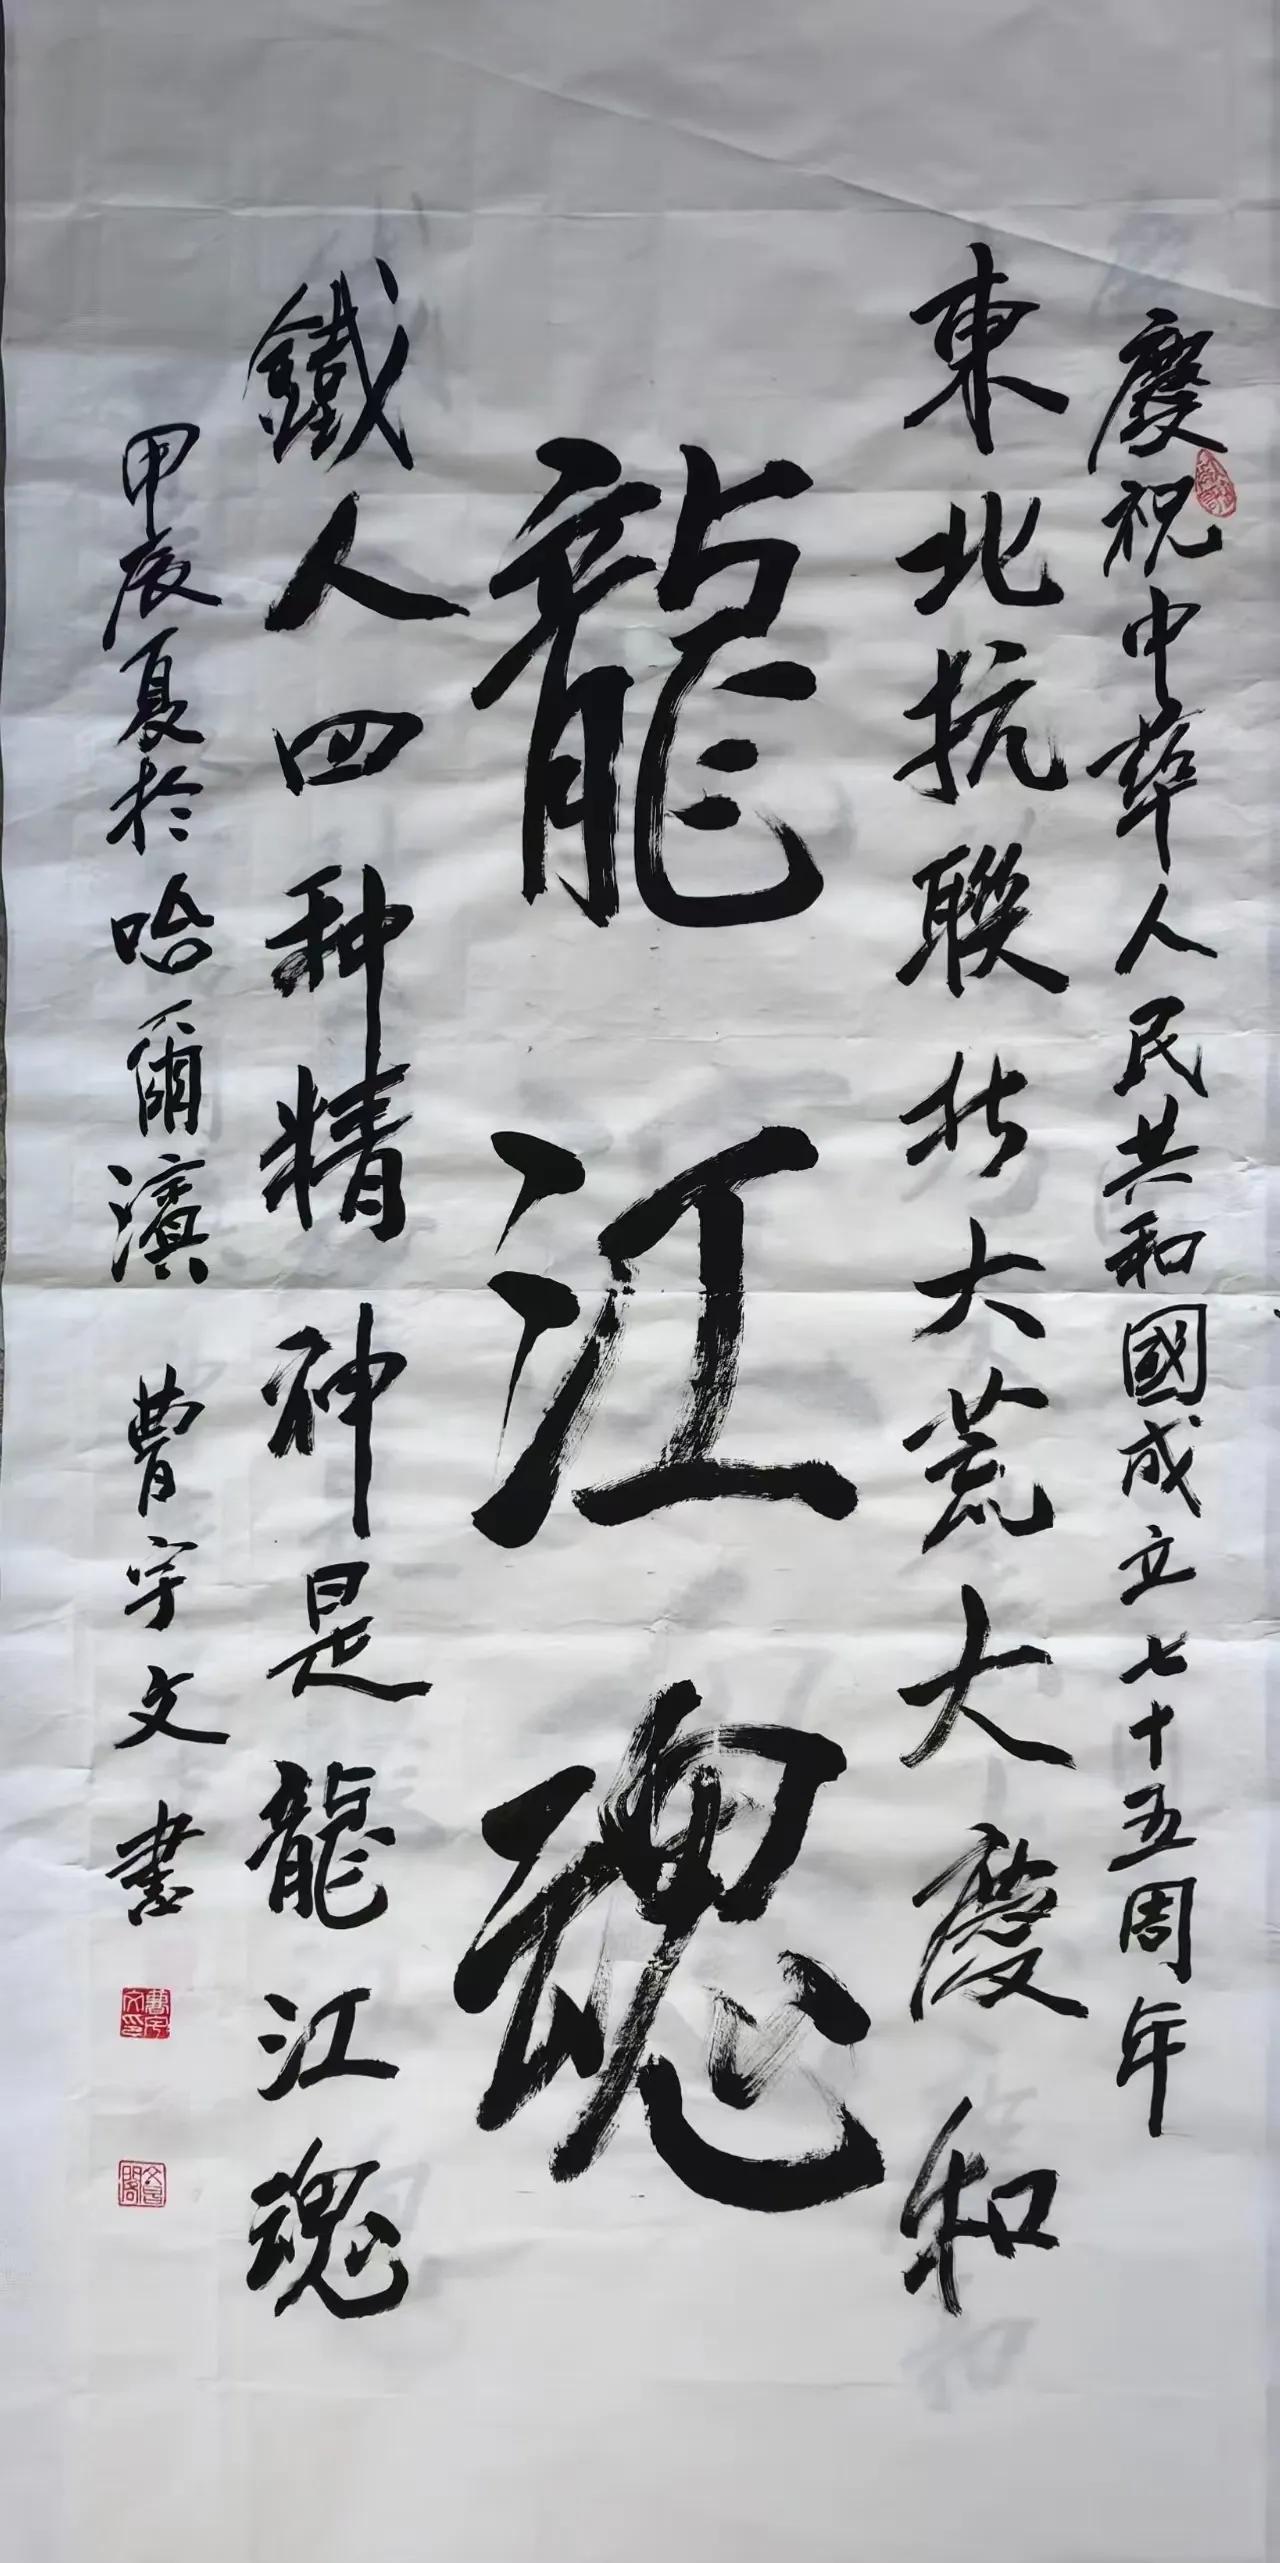 慶祝中華人民共和國成立七十五周年
東北抗聯北大荒大慶和
龍江魂
鐵人四种精神是龍江魂
甲辰夏於哈爾濱 曹宇文書
曹宇文印